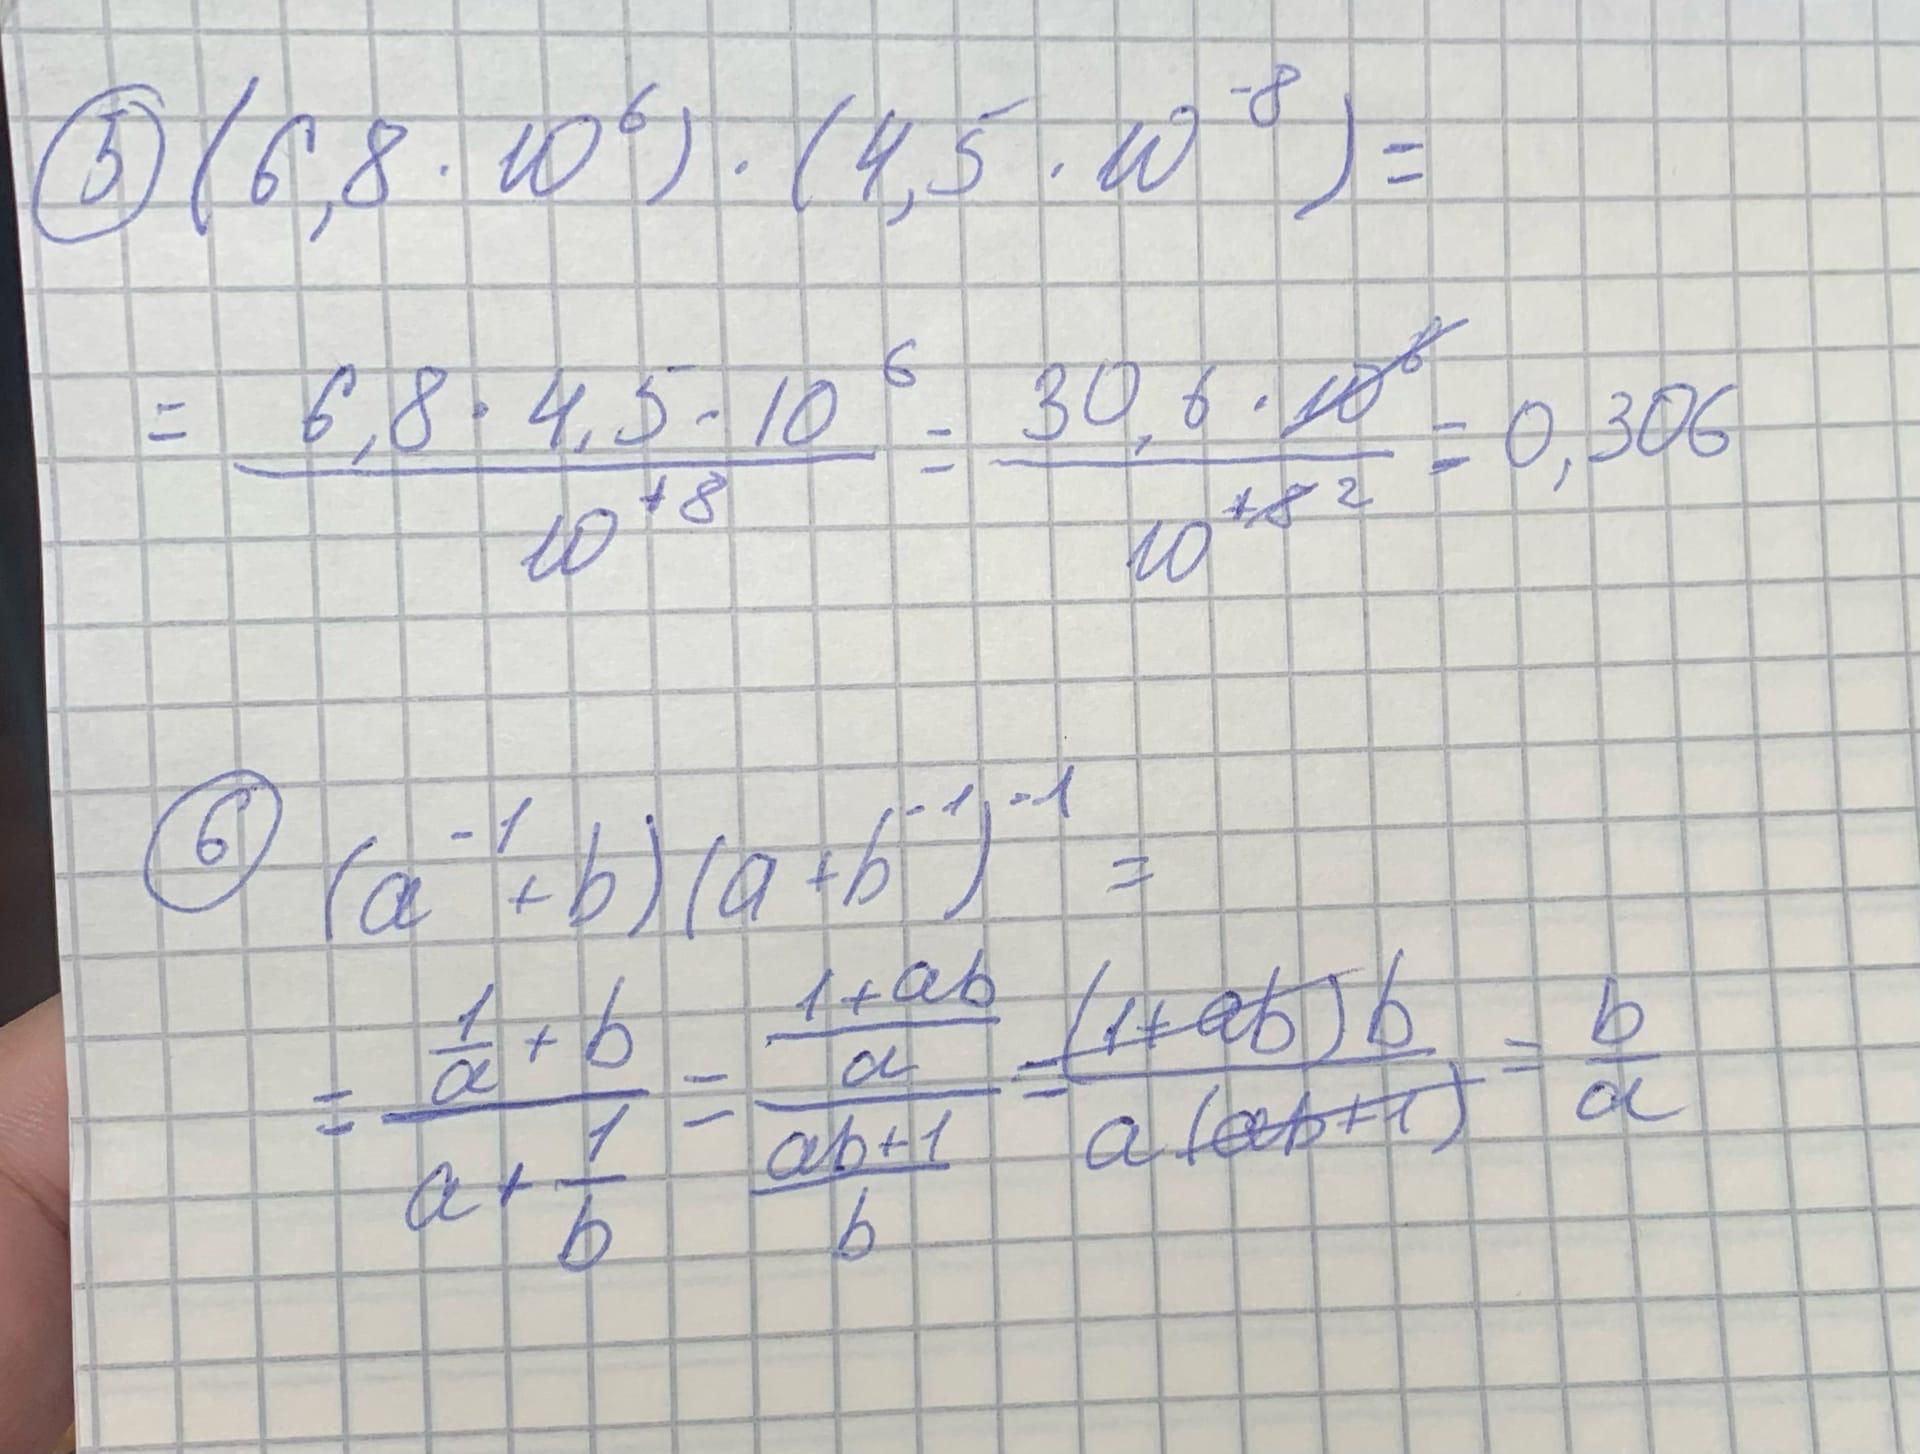 ⑤ (6,8 · 10⁶) · (4,5 · 10⁻⁸) =
= (6,8 · 4,5 · 10⁶)/(10⁺⁸) = (30,6 · 10⁶)/(10⁺⁸ ²) = 0,306
⑥ (a⁻¹ + b)(a + b⁻¹)⁻¹ =
= (1/a + b)/(a + 1/b) = ((1+ab)/a)/((ab+1)/b) = ((1+ab)b)/(a(ab+1)) = b/a